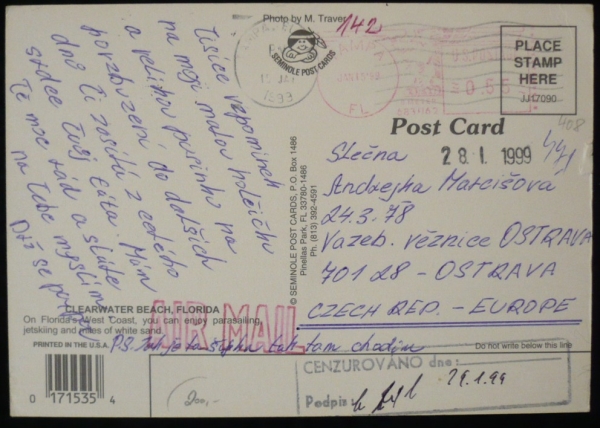 Photo by M. Traver
142
SEMINOLE POST CARDS
1999
FL
0.55
PLACE
STAMP
HERE
JJ17090
408
Post Card
28. I. 1999
Tisíce vzpomínek
na moji malou holčičku
a velikou pusinku na
povzbuzení do dalších
dnů Ti zasílá z celého
srdce Tvůj
Mám
Tě moc rád a stále
na Tebe myslím.
Drž se
© SEMINOLE POST CARDS, P.O. Box 1486
Pinellas Park, FL 33780-1486
Ph. (813) 392-4591
Slečna
Andrejka Marcišova
24.3.78
Vazeb. věznice OSTRAVA
701 28 - OSTRAVA
CZECH REP. - EUROPE
CLEARWATER BEACH, FLORIDA
On Florida's West Coast, you can enjoy parasailing,
jetskiing and miles of white sand.
AIR MAIL
PRINTED IN THE U.S.A.
P.S. tam chodím
Do not write below this line
CENZUROVÁNO dne: 29.1.99
Podpis
0 171535 4
200,-